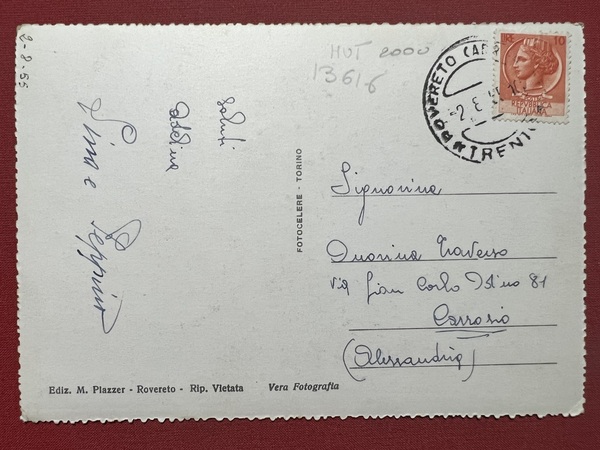 2-8-55
saluti
Adelina
Lina e
Peppino
HUT 2000
13616
ROVERETO
TRENTO
-2.8
ITALIANA
FOTOCELERE - TORINO
Signorina
Traverso
Via Gian Carlo 81
Carrosio
(Alessandria)
Ediz. M. Piazzer - Rovereto - Rip. Vietata
Vera Fotografia